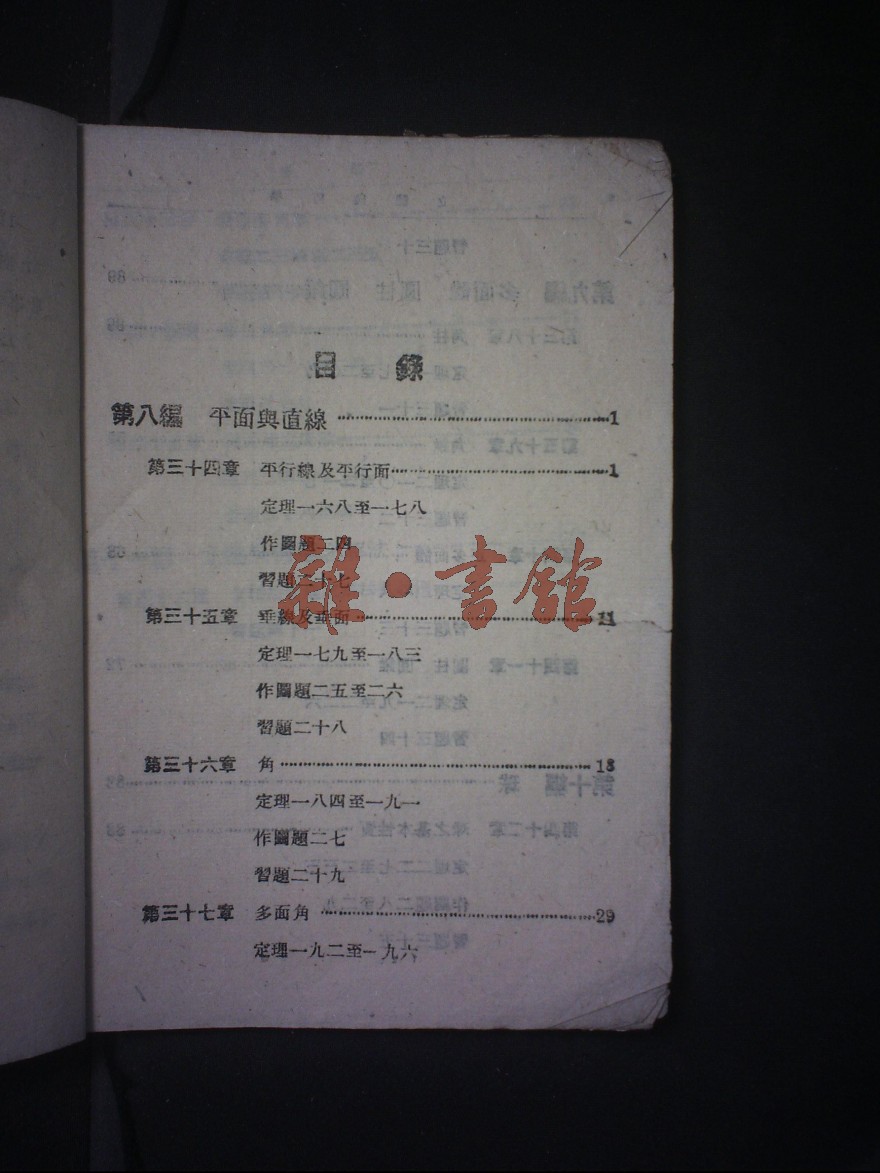 目 錄
第八編 平面與直線 ………… 1
第三十四章 平行線及平行面 ………… 1
定理一六八至一七八
作圖題二四
習題二十七
雜·書館
第三十五章 垂線及垂面 ………… 11
定理一七九至一八三
作圖題二五至二六
習題二十八
第三十六章 角 ………… 18
定理一八四至一九一
作圖題二七
習題二十九
第三十七章 多面角 ………… 29
定理一九二至一九六